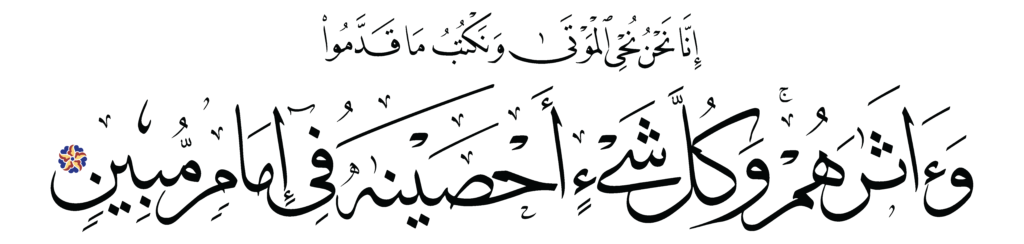 إِنَّا نَحْنُ نُحْيِ ٱلْمَوْتَىٰ وَنَكْتُبُ مَا قَدَّمُوا۟
وَءَاثَٰرَهُمْ ۚ وَكُلَّ شَىْءٍ أَحْصَيْنَٰهُ فِىٓ إِمَامٍ مُّبِينٍ